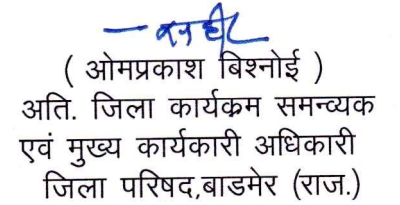 ( ओमप्रकाश बिश्नोई )
अति. जिला कार्यक्रम समन्व्यक
एवं मुख्य कार्यकारी अधिकारी
जिला परिषद,बाडमेर (राज.)